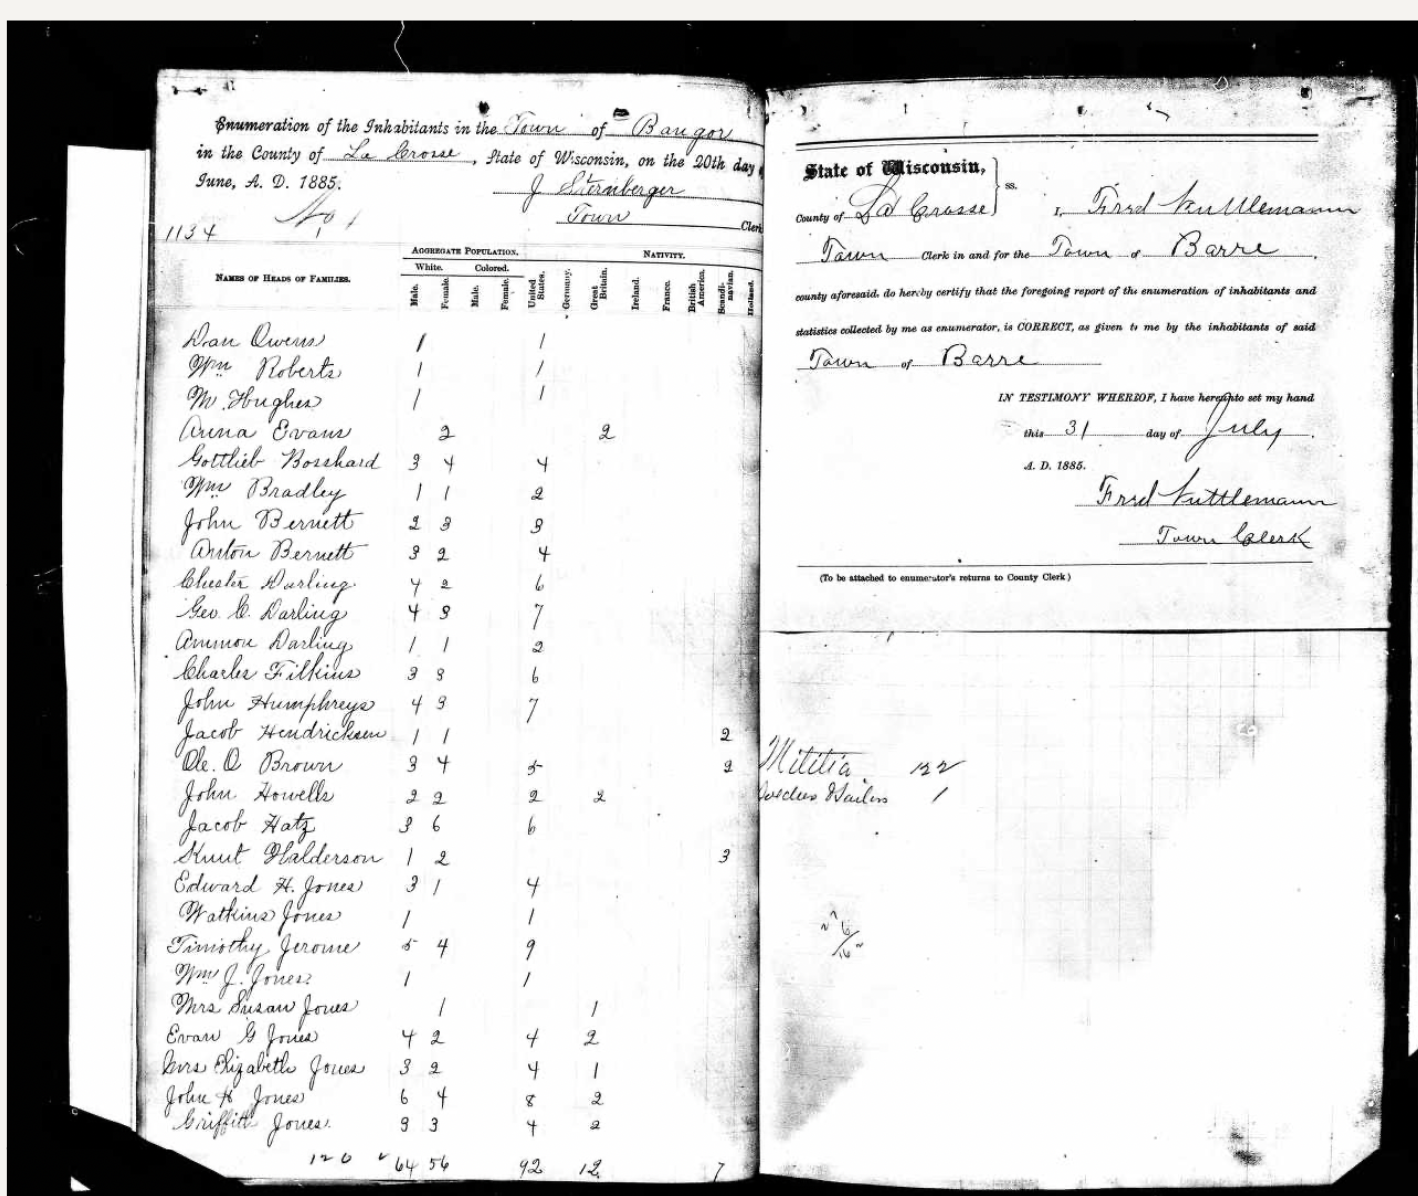 Enumeration of the Inhabitants in the Town of Bangor
in the County of La Crosse, State of Wisconsin, on the 20th day
June, A. D. 1885.
J Sternberger
Town Clerk
No 1
1134
NAMES OF HEADS OF FAMILIES. AGGREGATE POPULATION. NATIVITY.
White. Colored.
Male. Female. Male. Female. United States. Germany. Great Britain. Ireland. France. British America. Scandinavian. Holland.
Dan Owens 1 1
Wm Roberts 1 1
M. Hughes 1 1
Anna Evans 2 2
Gottlieb Bosshard 3 4 4
Wm Bradley 1 1 2
John Bernett 2 3 3
Anton Bernett 3 2 4
Chester Darling 4 2 6
Geo. C. Darling 4 3 7
Ammon Darling 1 1 2
Charles Filkins 3 3 6
John Humphreys 4 3 7
Jacob Hendricksen 1 1 2
Ole. O Brown 3 4 5 2
John Howells 2 2 2 2
Jacob Hatz 3 6 6
Knut Halderson 1 2 3
Edward H. Jones 3 1 4
Watkins Jones 1 1
Timothy Jerome 5 4 9
Wm J. Jones. 1 1
Mrs Susan Jones 1 1
Evan G Jones 4 2 4 2
Mrs Elizabeth Jones 3 2 4 1
John H Jones 6 4 8 2
Griffith Jones. 3 3 4 2
120 64 56 92 12 7
State of Wisconsin,
County of La Crosse ss. I, Fred
Town Clerk in and for the Town of Barre
county aforesaid, do hereby certify that the foregoing report of the enumeration of inhabitants and
statistics collected by me as enumerator, is CORRECT, as given to me by the inhabitants of said
Town of Barre
IN TESTIMONY WHEREOF, I have hereunto set my hand
this 31 day of July.
A. D. 1885.
Fred
Town Clerk
(To be attached to enumerator's returns to County Clerk)
Militia 122
1